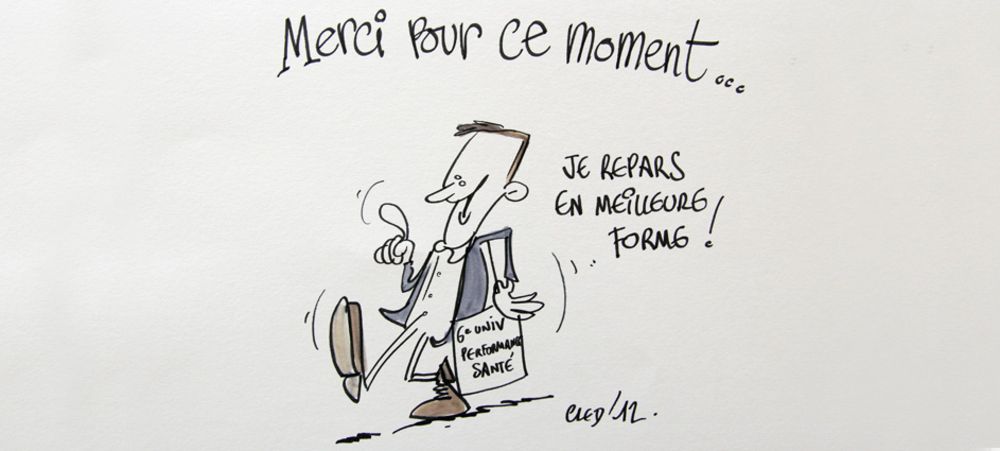 Merci pour ce moment...
JE REPARS
EN MEILLEURE
FORME !
6e UNIV
PERFORMANCE
SANTÉ
CLED'12.